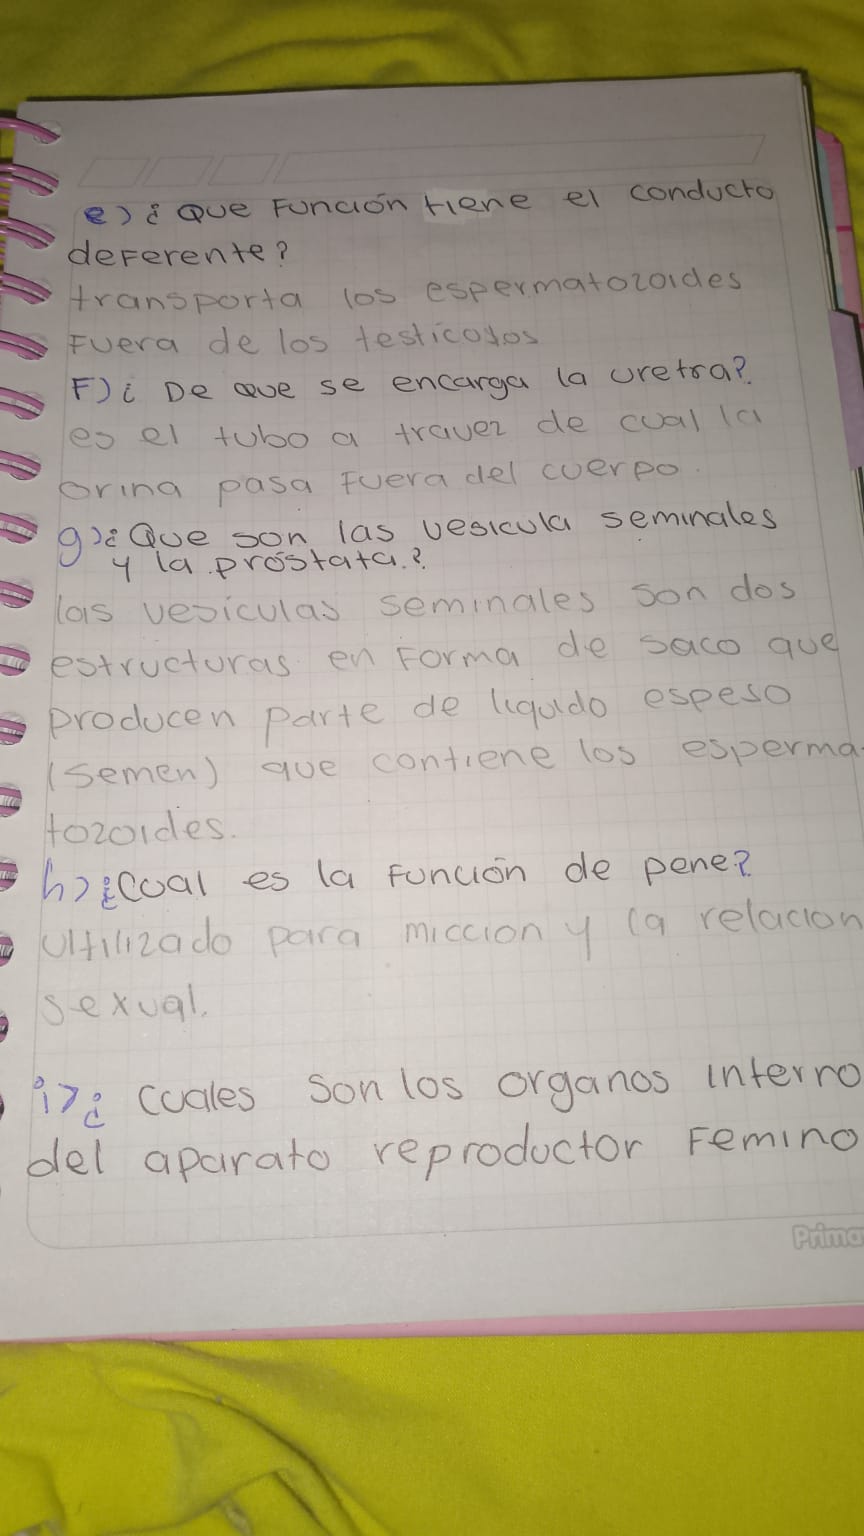 e) ¿ Que Función tiene el conducto
deferente?
transporta los espermatozoides
Fuera de los testicolos
F) ¿ De que se encarga la uretra?
es el tubo a travez de cual la
orina pasa Fuera del cuerpo.
g) ¿Que son las vesicula seminales
y la prostata.?
las vesiculas seminales son dos
estructuras en Forma de saco que
producen parte de liquido espeso
(semen) que contiene los esperma
tozoides.
h) ¿Cual es la Función de pene?
Ultilizado para miccion y la relacion
sexual.
i) ¿ Cuales son los organos interno
del aparato reproductor Femino
Prima